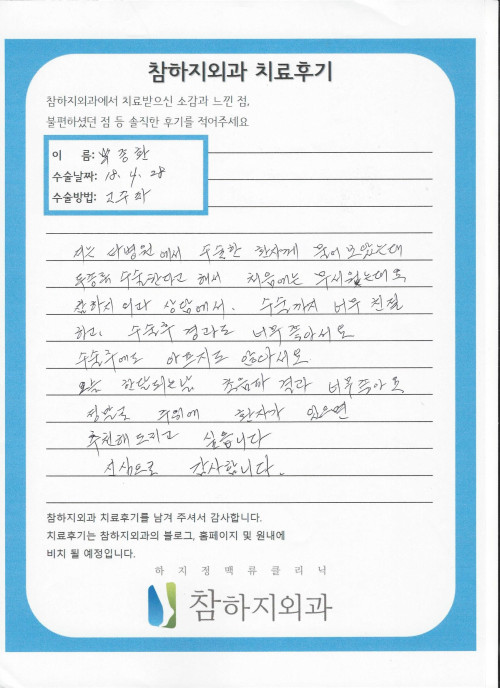 참하지외과 치료후기
참하지외과에서 치료받으신 소감과 느낀 점,
불편하셨던 점 등 솔직한 후기를 적어주세요
이 름: 종환
수술날짜: 18. 4. 28
수술방법: 고주파
저는 타병원에서 수술한 환자께 물어 보았는데
수술한다고 해서 처음에는 무서웠는데요
참하지외과 상담에서. 수술까지 너무 친절
하고, 수술후 경과도 너무 좋아서요
수술후에도 아프지도 않다서요.
오늘 한달되는날 초음파 결과 너무좋아요
정말로 주위에 환자가 있으면
추천해드리고 싶습니다
진심으로 감사합니다.
참하지외과 치료후기를 남겨 주셔서 감사합니다.
치료후기는 참하지외과의 블로그, 홈페이지 및 원내에
비치 될 예정입니다.
하지정맥류클리닉
참하지외과